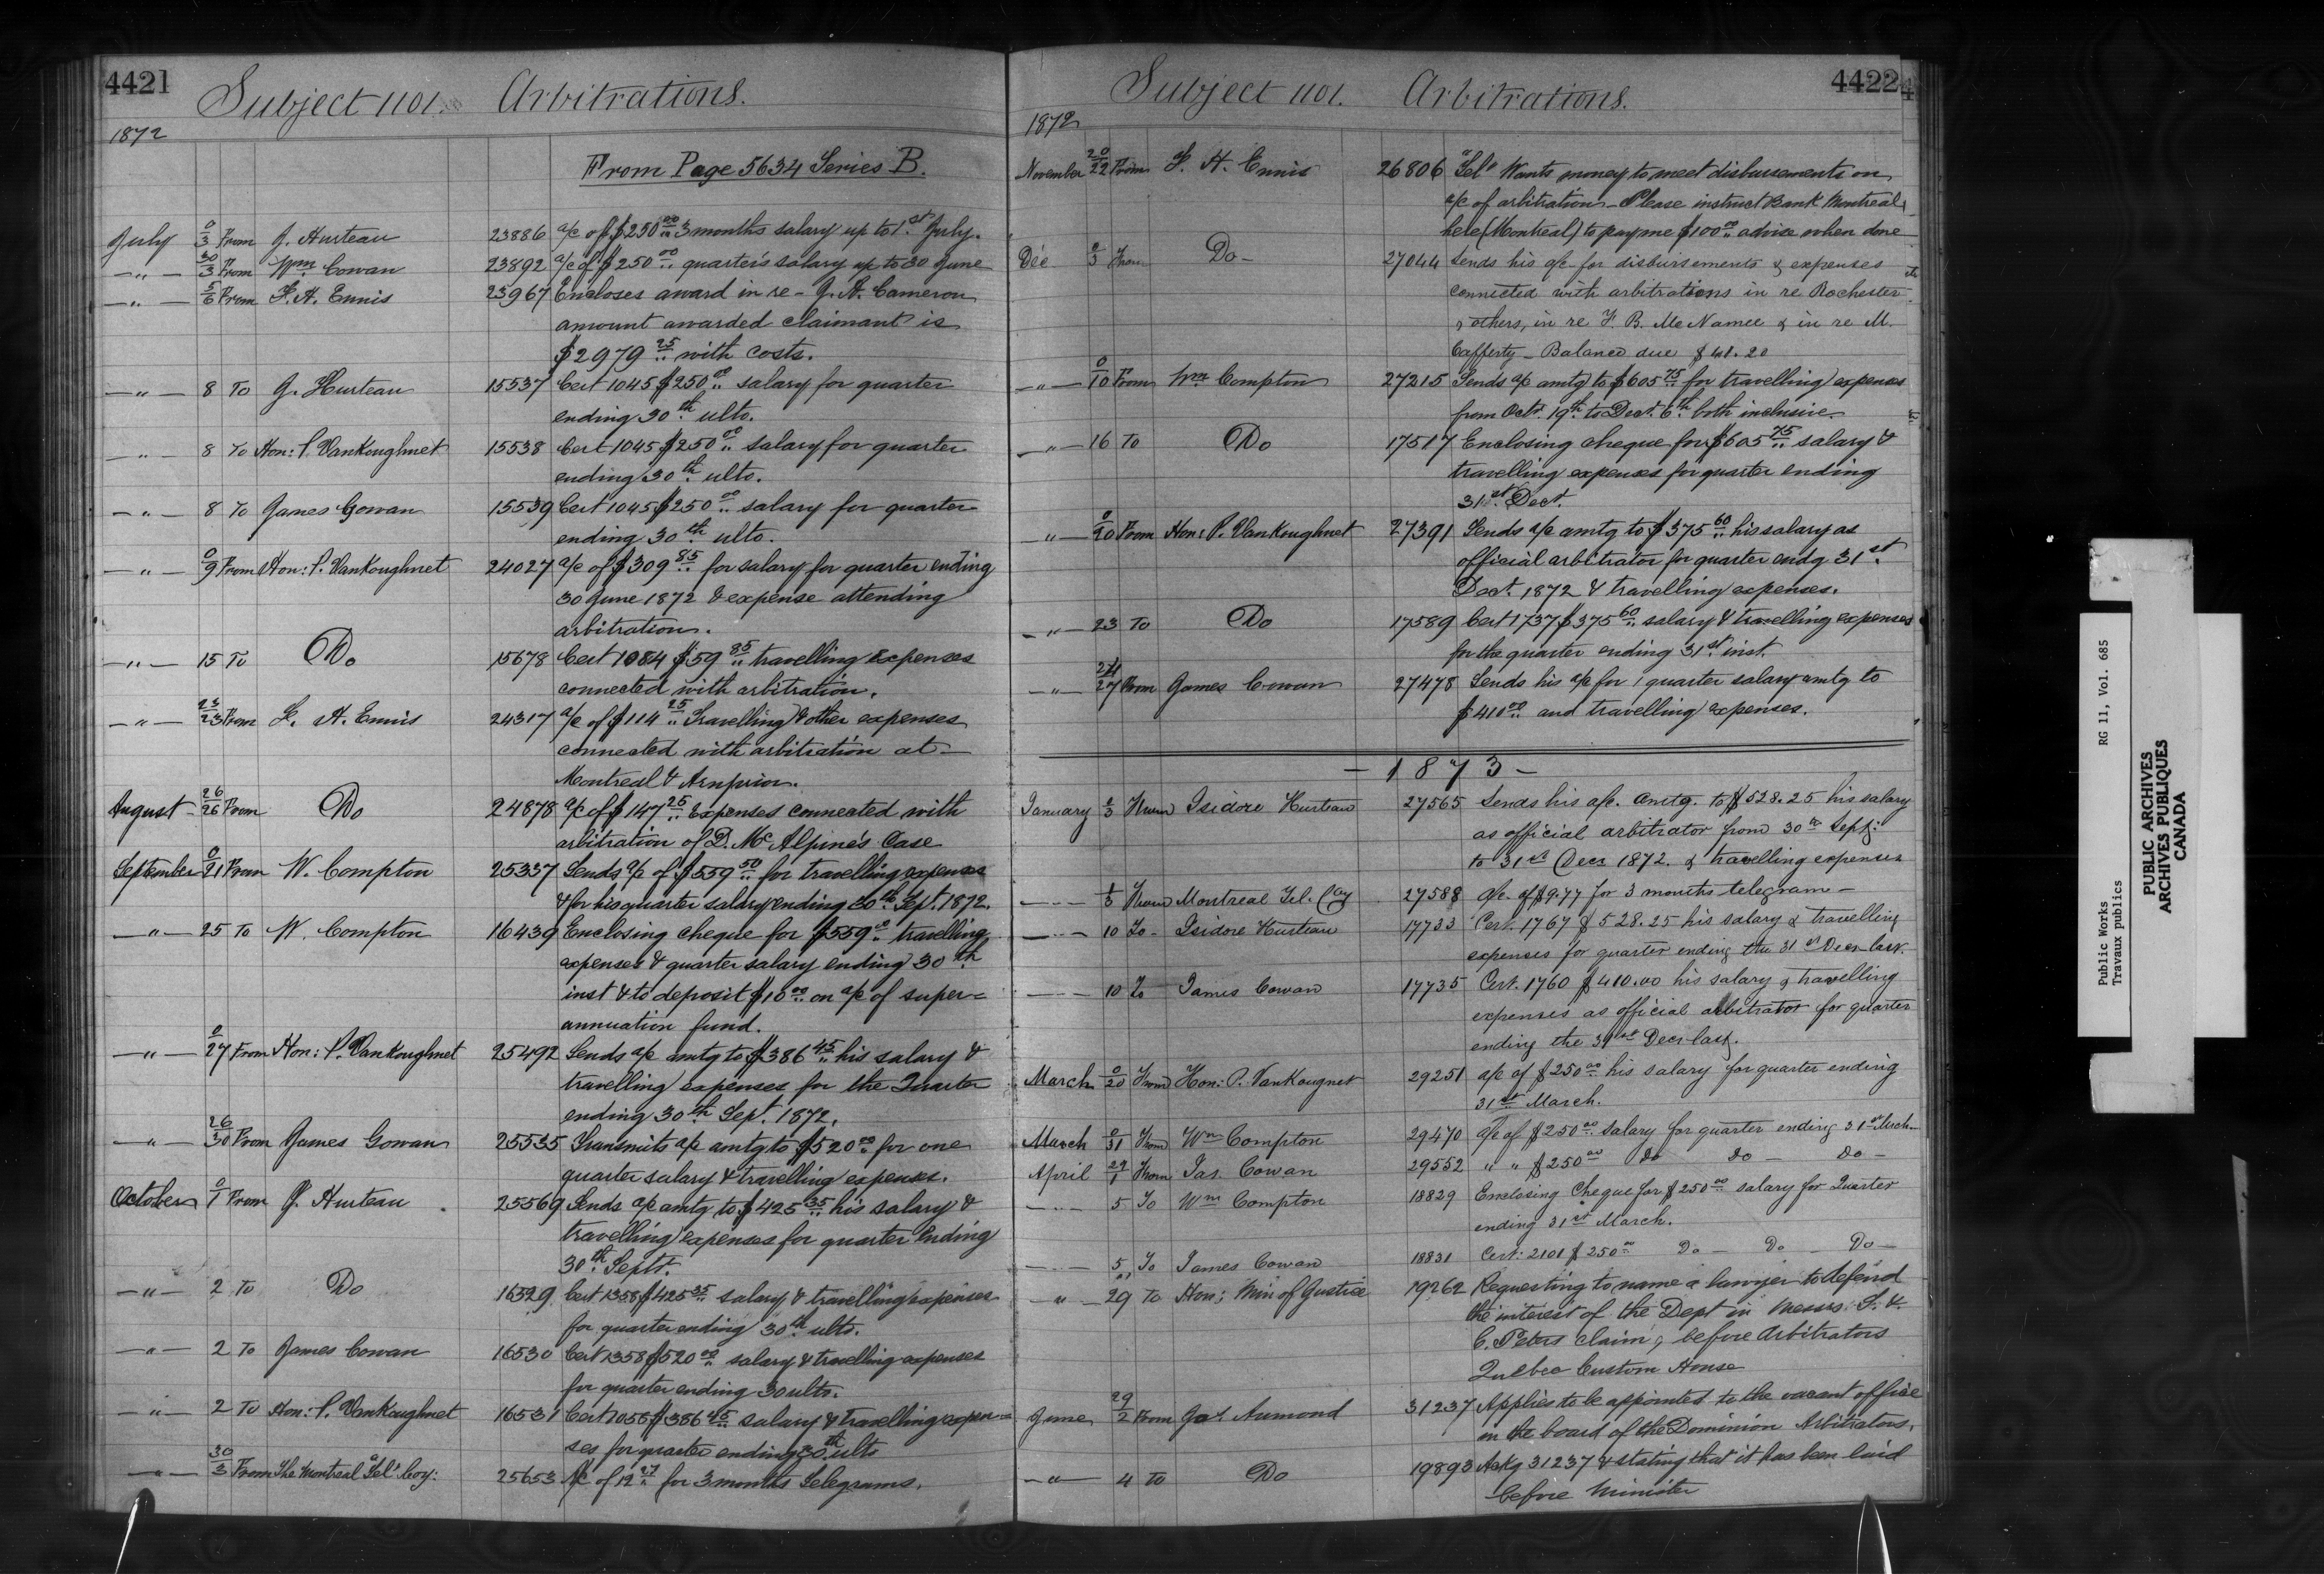 4421
Subject 1101. Arbitrations.
1872
From Page 5634 Series B.
July 0/3 From J. Hurteau 23886 a/c of $250.00 3 months salary up to 1st July.
—"— 30/3 From Wm Cowan 23892 a/c of $250.00 quarter's salary up to 30 June
—"— 5/6 From F. H. Ennis 23967 Encloses award in re - J. H. Cameron
amount awarded claimant is
$2979.25 with costs.
—"— 8 To J. Hurteau 15537 Cert 1045 $250.00 salary for quarter
ending 30th ulto.
—"— 8 To Hon: P. VanKoughnet 15538 Cert 1045 $250.00 salary for quarter
ending 30th ulto.
—"— 8 To James Cowan 15539 Cert 1045 $250.00 salary for quarter
ending 30th ulto.
—"— 0/9 From Hon: P. VanKoughnet 24027 a/c of $309.85 for salary for quarter ending
30 June 1872 & expense attending
arbitration.
—"— 15 To Do 15678 Cert 1084 $59.85 travelling expenses
connected with arbitration.
—"— 23/23 From F. H. Ennis 24317 a/c of $114.25 Travelling & other expenses
connected with arbitration at
Montreal & Arnprior.
August 26/26 From Do 24878 a/c of $147.25 Expenses connected with
arbitration of D. McAlpine's Case
September 0/21 From W. Compton 25337 Sends a/c of $559.50 for travelling expenses
& for his quarter salary ending 30th Sept. 1872.
—"— 25 To W. Compton 16439 Enclosing cheque for $559. travelling
expenses & quarter salary ending 30th
inst & to deposit $10.00 on a/c of super=
annuation fund.
—"— 0/27 From Hon: P. VanKoughnet 25492 Sends a/c amtg to $386.45 his salary &
travelling expenses for the Quarter
ending 30th Sept. 1872.
—"— 26/30 From James Cowan 25535 Transmits a/c amtg to $520.00 for one
quarter salary & travelling expenses.
October 0/1 From J. Hurteau 25569 Sends a/c amtg to $425.35 his salary &
travelling expenses for quarter ending
30th Septr.
—"— 2 To Do 16529 Cert 1358 $425.35 salary & travelling expenses
for quarter ending 30th ulto.
—"— 2 To James Cowan 16530 Cert 1358 $520.00 salary & travelling expenses
for quarter ending 30 ulto.
—"— 2 To Hon: P. VanKoughnet 16531 Cert $386.45 salary & travelling expen=
ses for quarter ending 30th ulto
—"— 30/3 From The Montreal Tel Coy: 25653 A/c of 12.27 for 3 months Telegrams.
4422
Subject 1101. Arbitrations.
1872
November 20/22 From F. H. Ennis 26806 "Tel" Wants money to meet disbursements on
a/c of arbitration - Please instruct Bank Montreal
here (Montreal) to pay me $100.00 advise when done
Dec 2/3 From Do - 27044 Sends his a/c for disbursements & expenses
connected with arbitrations in re Rochester
& others, in re F. B. McNamee & in re M.
Cafferty - Balance due $41.20
—"— 0/10 From Wm Compton 27215 Sends a/c amtg to $605.75 for travelling expenses
from Octr. 19th to Dect. 6th both inclusive.
—"— 16 To Do 17517 Enclosing cheque for $605.75 salary &
travelling expenses for quarter ending
31st Dect.
—"— 0/20 From Hon: P. VanKoughnet 27391 Sends a/c amtg to $375.60 his salary as
official arbitrator for quarter endg 31st
Dect. 1872 & travelling expenses.
—"— 23 To Do 17589 Cert 1737 $375.60 salary & travelling expenses
for the quarter ending 31st inst.
—"— 24/27 From James Cowan 27478 Sends his a/c for 1 quarter salary amtg to
$410.00 and travelling expenses.
— 1873 —
January 2/3 From Isidore Hurteau 27565 Sends his a/c. amtg. to $528.25 his salary
as official arbitrator from 30th Sept:
to 31st Decr 1872. & travelling expenses
—"— 1/3 From Montreal Tel. Coy 27588 a/c. of $9.77 for 3 months telegram -
—"— 10 To - Isidore Hurteau 17733 Cert. 1767 $528.25 his salary & travelling
expenses for quarter ending the 31st Decr last.
—"— 10 To James Cowan 17735 Cert. 1760 $410.00 his salary & travelling
expenses as official arbitrator for quarter
ending the 31st Decr last.
March 0/20 From Hon: P. VanKougnet 29251 a/c of $250.00 his salary for quarter ending
31st March.
March 0/31 From Wm Compton 29470 a/c of $250.00 salary for quarter ending 31st Mch
April 29/1 From Jas. Cowan 29552 " " $250.00 Do Do - Do -
—"— 5 To Wm Compton 18829 Enclosing Cheque for $250.00 salary for Quarter
ending 31st March.
—"— 5 To James Cowan 18831 Cert: 2101 $250.00 Do - Do - Do -
—"— 29 To Hon: Min of Justice 19262 Requesting to name a lawyer to defend
the interest of the Dept in Messrs. S. &
C. Peters claim, before Arbitrators
Quebec Custom House
June 29/2 From Jas. Aumond 31237 Applies to be appointed to the vacant office
in the board of the Dominion Arbitrators.
—"— 4 To Do 19893 Ackg 31237 & stating that it has been laid
before Minister
Public Works RG 11, Vol. 685
Travaux publics
PUBLIC ARCHIVES
ARCHIVES PUBLIQUES
CANADA